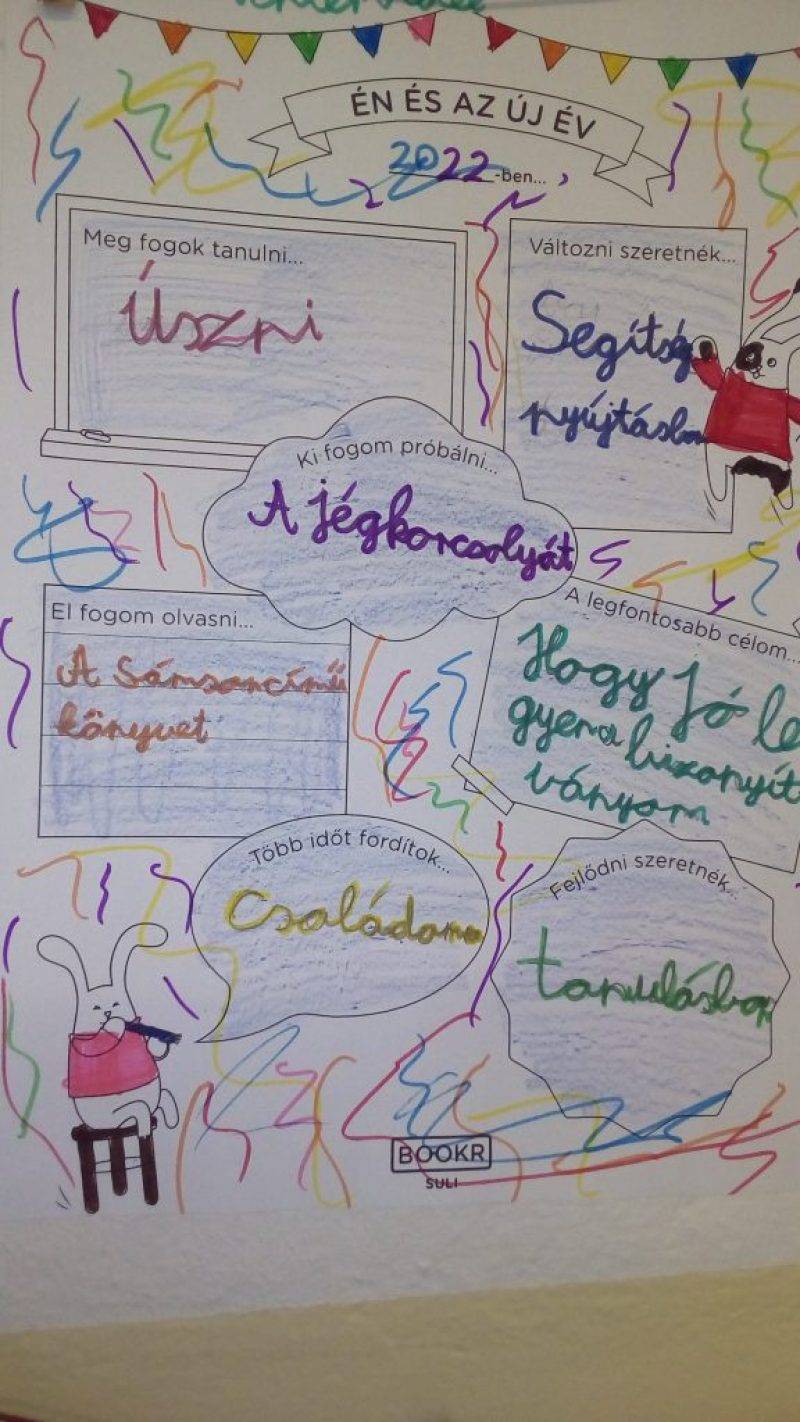 ÉN ÉS AZ ÚJ ÉV
2022-ben...
Meg fogok tanulni...
Úszni
Változni szeretnék...
Segítség
nyújtásban
Ki fogom próbálni...
A jégkorcsolyát
El fogom olvasni...
A Sámsoncímű
könyvet
A legfontosabb célom...
Hogy jó le
gyen a bizonyít
ványom
Több időt fordítok...
Családomra
Fejlődni szeretnék...
tanulásban
BOOKR
SULI